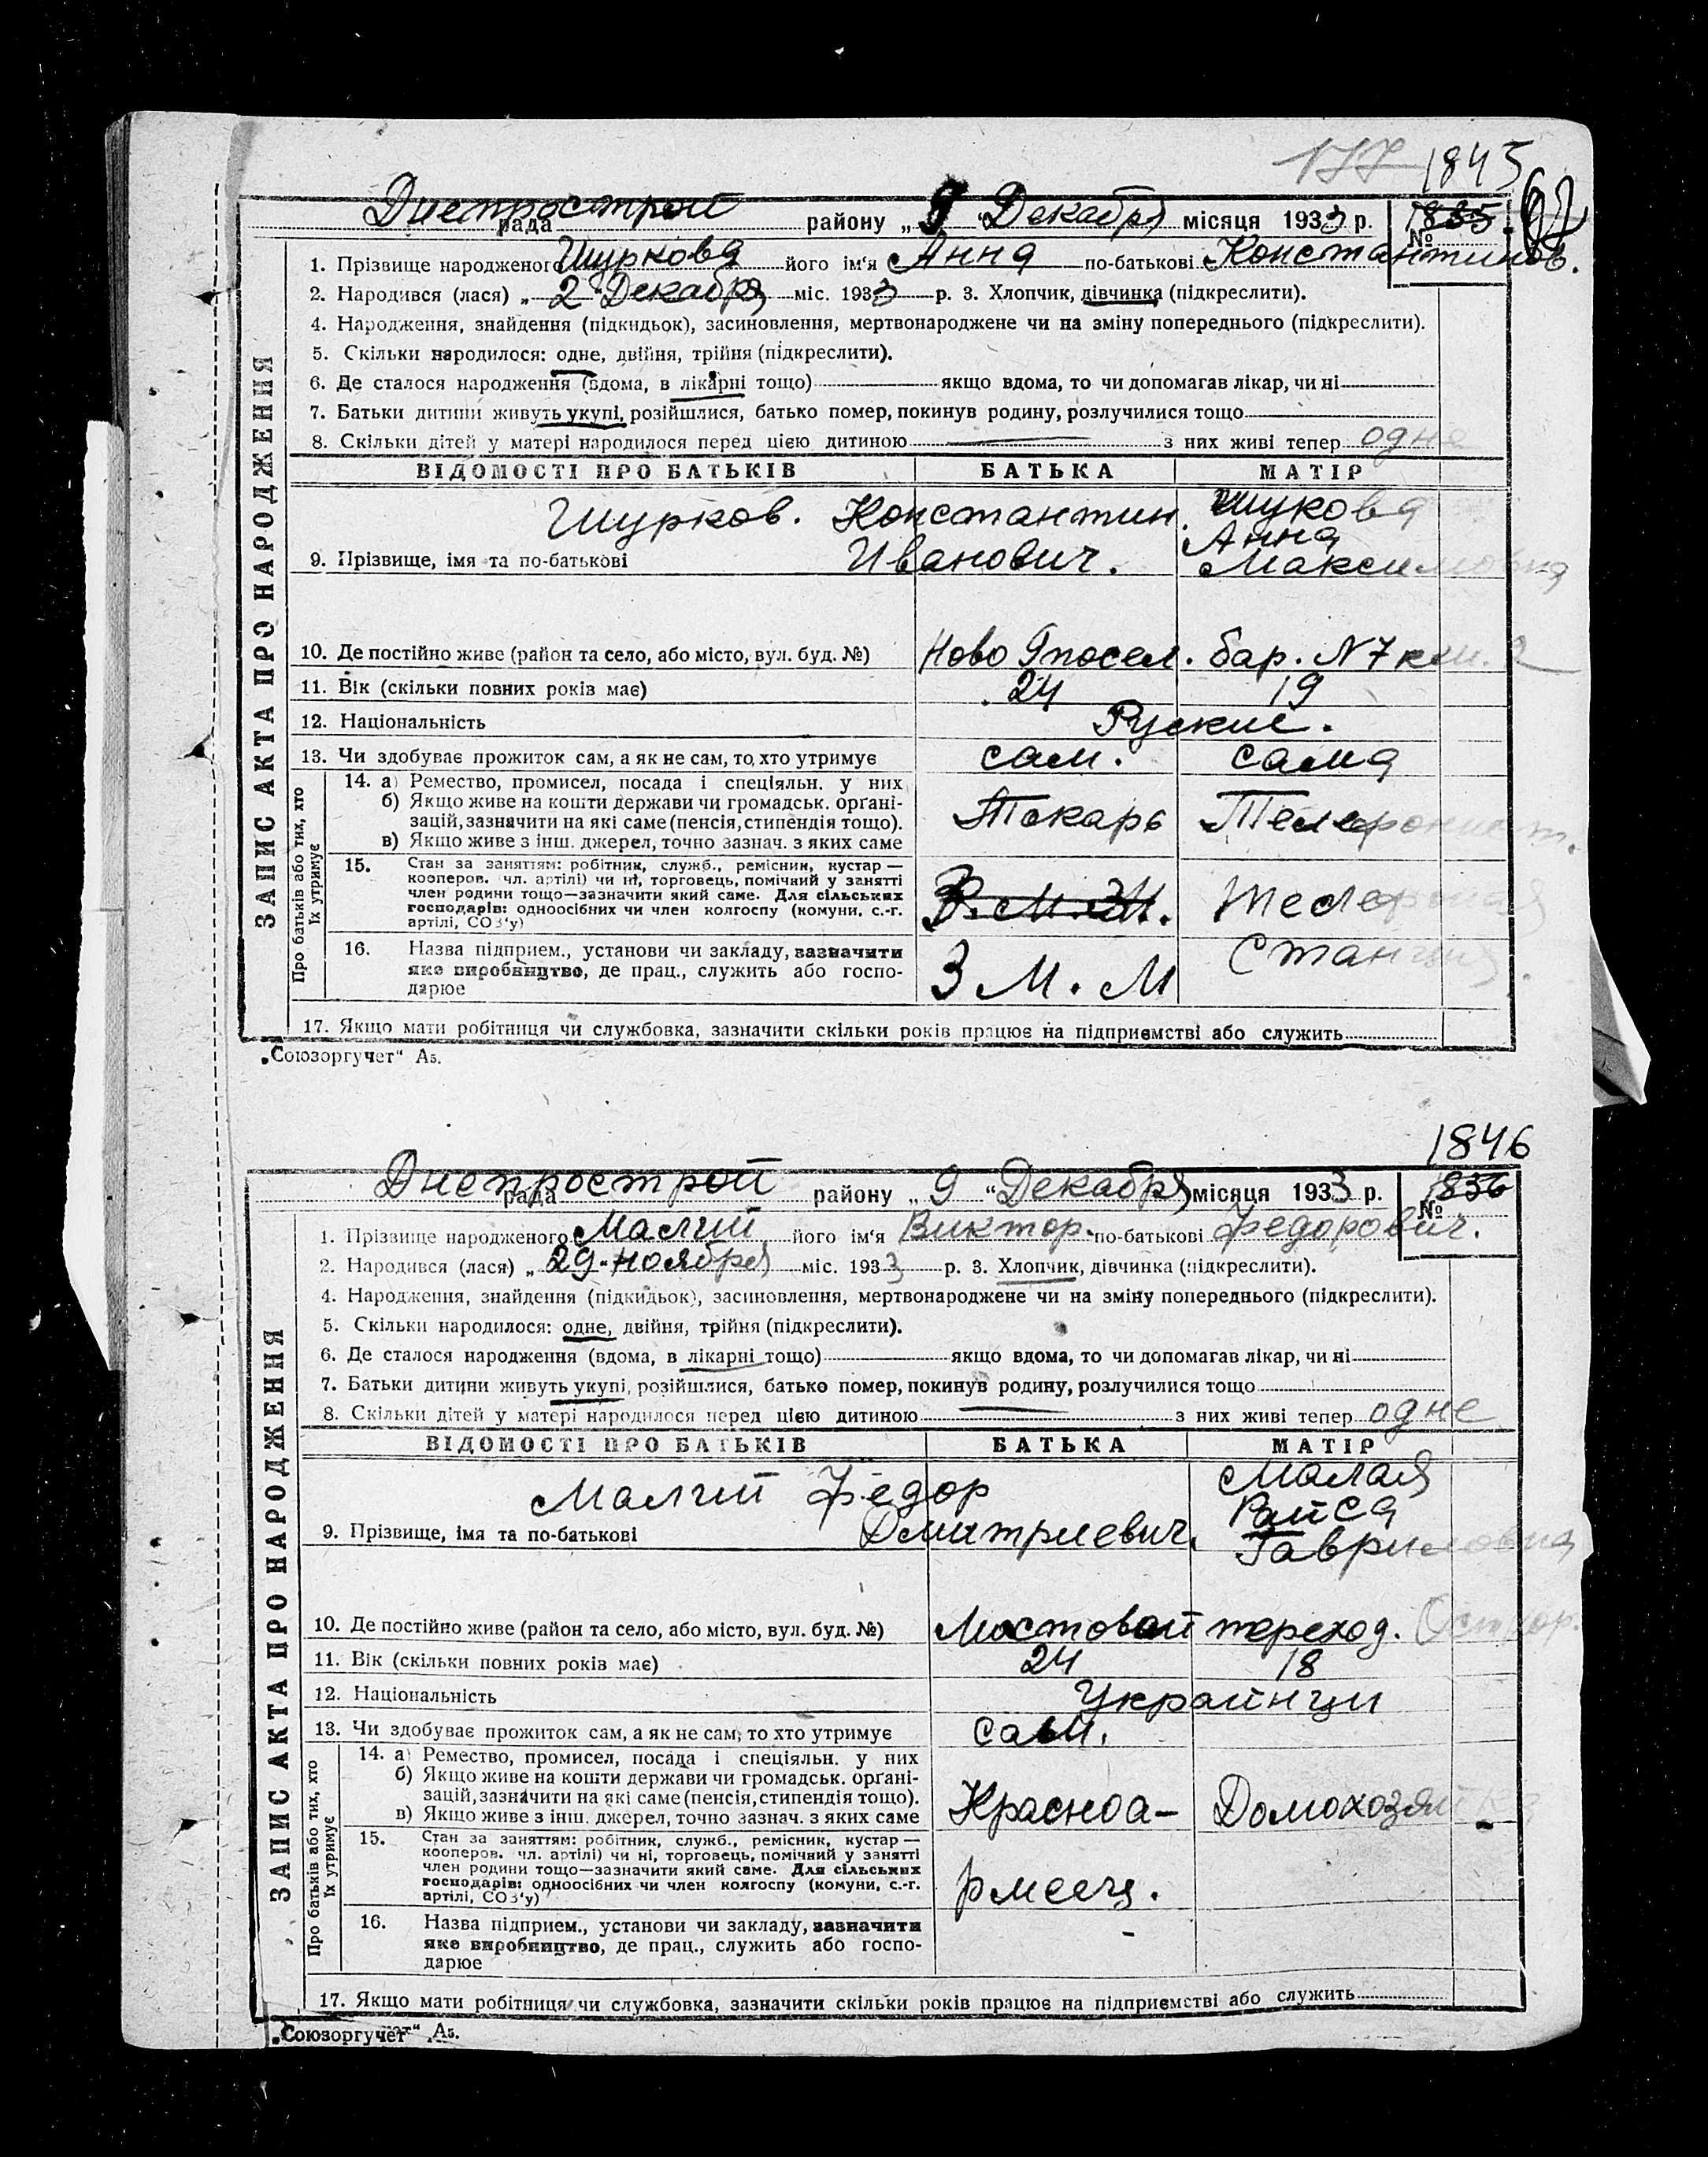 177 1845
Днепрострой
рада району „ 9 “ Декабря місяця 1933 р. № 1835
1. Прізвище народженого Шуркова його ім'я Анна по-батькові Константинов.
2. Народився (лася) „ 2 Декабря міс. 1933 р. 3. Хлопчик, дівчинка (підкреслити).
4. Народження, знайдення (підкидьок), засиновлення, мертвонароджене чи на зміну попереднього (підкреслити).
5. Скільки народилося: одне, двійня, трійня (підкреслити).
6. Де сталося народження (вдома, в лікарні тощо) якщо вдома, то чи допомагав лікар, чи ні
7. Батьки дитини живуть укупі, розійшлися, батько помер, покинув родину, розлучилися тощо
8. Скільки дітей у матері народилося перед цією дитиною — з них живі тепер одне
ЗАПИС АКТА ПРО НАРОДЖЕННЯ
ВІДОМОСТІ ПРО БАТЬКІВ БАТЬКА МАТІР
Шурков. Константин. Шукова
Анна
9. Прізвище, імя та по-батькові Иванович. Максимовна
10. Де постійно живе (район та село, або місто, вул. буд. №) Ново посел. бар. N 7 ком. 2
11. Вік (скільки повних років має) 24 19
12. Національність Руские.
13. Чи здобуває прожиток сам, а як не сам, то, хто утримує сам. сама
Про батьків або тих, хто їх утримує
14. а) Ремество, промисел, посада і спеціяльн. у них
б) Якщо живе на кошти держави чи громадськ. орґані-
зацій, зазначити на які саме (пенсія, стипендія тощо). Токарь Телефонист.
в) Якщо живе з інш. джерел, точно зазнач. з яких саме
15. Стан за заняттям: робітник, служб., ремісник, кустар —
кооперов. чл. артілі) чи ні, торговець, помічний у занятті
член родини тощо—зазначити який саме. Для сільських З. М. М. Телефоная
господарів: одноосібних чи член колгоспу (комуни, с.-г.
артілі, СОЗ'у)
16. Назва підприєм., установи чи закладу, зазначити Станция.
яке виробництво, де прац., служить або госпо- З М. М
дарює
17. Якщо мати робітниця чи службовка, зазначити скільки років працює на підприємстві або служить
„Союзоргучет“ А5.
1846
Днепрострой
рада району „ 9 “ Декабря місяця 1933 р. № 1836
1. Прізвище народженого Малий його ім'я Виктор. по-батькові Федорович.
2. Народився (лася) „ 29 ноября міс. 1933 р. 3. Хлопчик, дівчинка (підкреслити).
4. Народження, знайдення (підкидьок), засиновлення, мертвонароджене чи на зміну попереднього (підкреслити).
5. Скільки народилося: одне, двійня, трійня (підкреслити).
6. Де сталося народження (вдома, в лікарні тощо) якщо вдома, то чи допомагав лікар, чи ні
7. Батьки дитини живуть укупі, розійшлися, батько помер, покинув родину, розлучилися тощо
8. Скільки дітей у матері народилося перед цією дитиною — з них живі тепер одне
ЗАПИС АКТА ПРО НАРОДЖЕННЯ
ВІДОМОСТІ ПРО БАТЬКІВ БАТЬКА МАТІР
Малий Федор Малая
Раиса
9. Прізвище, імя та по-батькові Дмитриевич. Гавриловна
10. Де постійно живе (район та село, або місто, вул. буд. №) Мостовой переход.
11. Вік (скільки повних років має) 24 18
12. Національність Украинци
13. Чи здобуває прожиток сам, а як не сам, то хто утримує сам.
Про батьків або тих, хто їх утримує
14. а) Ремество, промисел, посада і спеціяльн. у них
б) Якщо живе на кошти держави чи громадськ. орґані-
зацій, зазначити на які саме (пенсія, стипендія тощо). Красноа- Домохозяйка
в) Якщо живе з інш. джерел, точно зазнач. з яких саме
15. Стан за заняттям: робітник, служб., ремісник, кустар —
кооперов. чл. артілі) чи ні, торговець, помічний у занятті
член родини тощо—зазначити який саме. Для сільських
господарів: одноосібних чи член колгоспу (комуни, с.-г. рмеец.
артілі, СОЗ'у)
16. Назва підприєм., установи чи закладу, зазначити
яке виробництво, де прац., служить або госпо- -
дарює
17. Якщо мати робітниця чи службовка, зазначити скільки років працює на підприємстві або служить
„Союзоргучет“ А5.